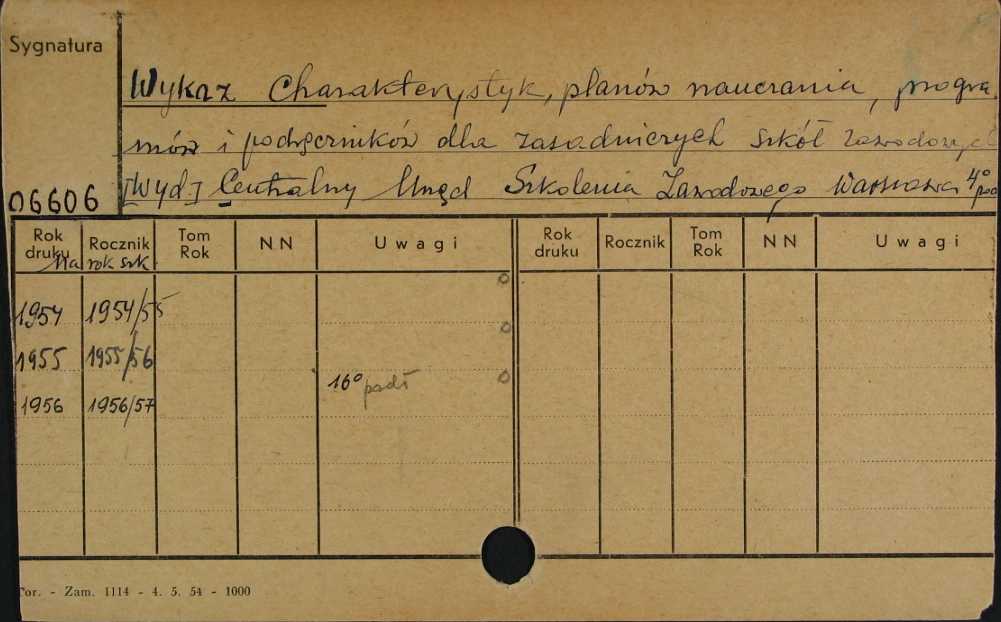 Sygnatura
Wykaz Charakterystyk, planów nauczania, progra-
mów i podręczników dla zasadniczych szkół zawodowych
06606 [Wyd.] Centralny Urząd Szkolenia Zawodowego Warszawa 4º
Rok druku Rocznik Tom Rok NN Uwagi Rok druku Rocznik Tom Rok NN Uwagi
Na rok szk.
1954 1954/55
1955 1955/56
16º podł
1956 1956/57
Tor. - Zam. 1114 - 4. 5. 54 - 1000